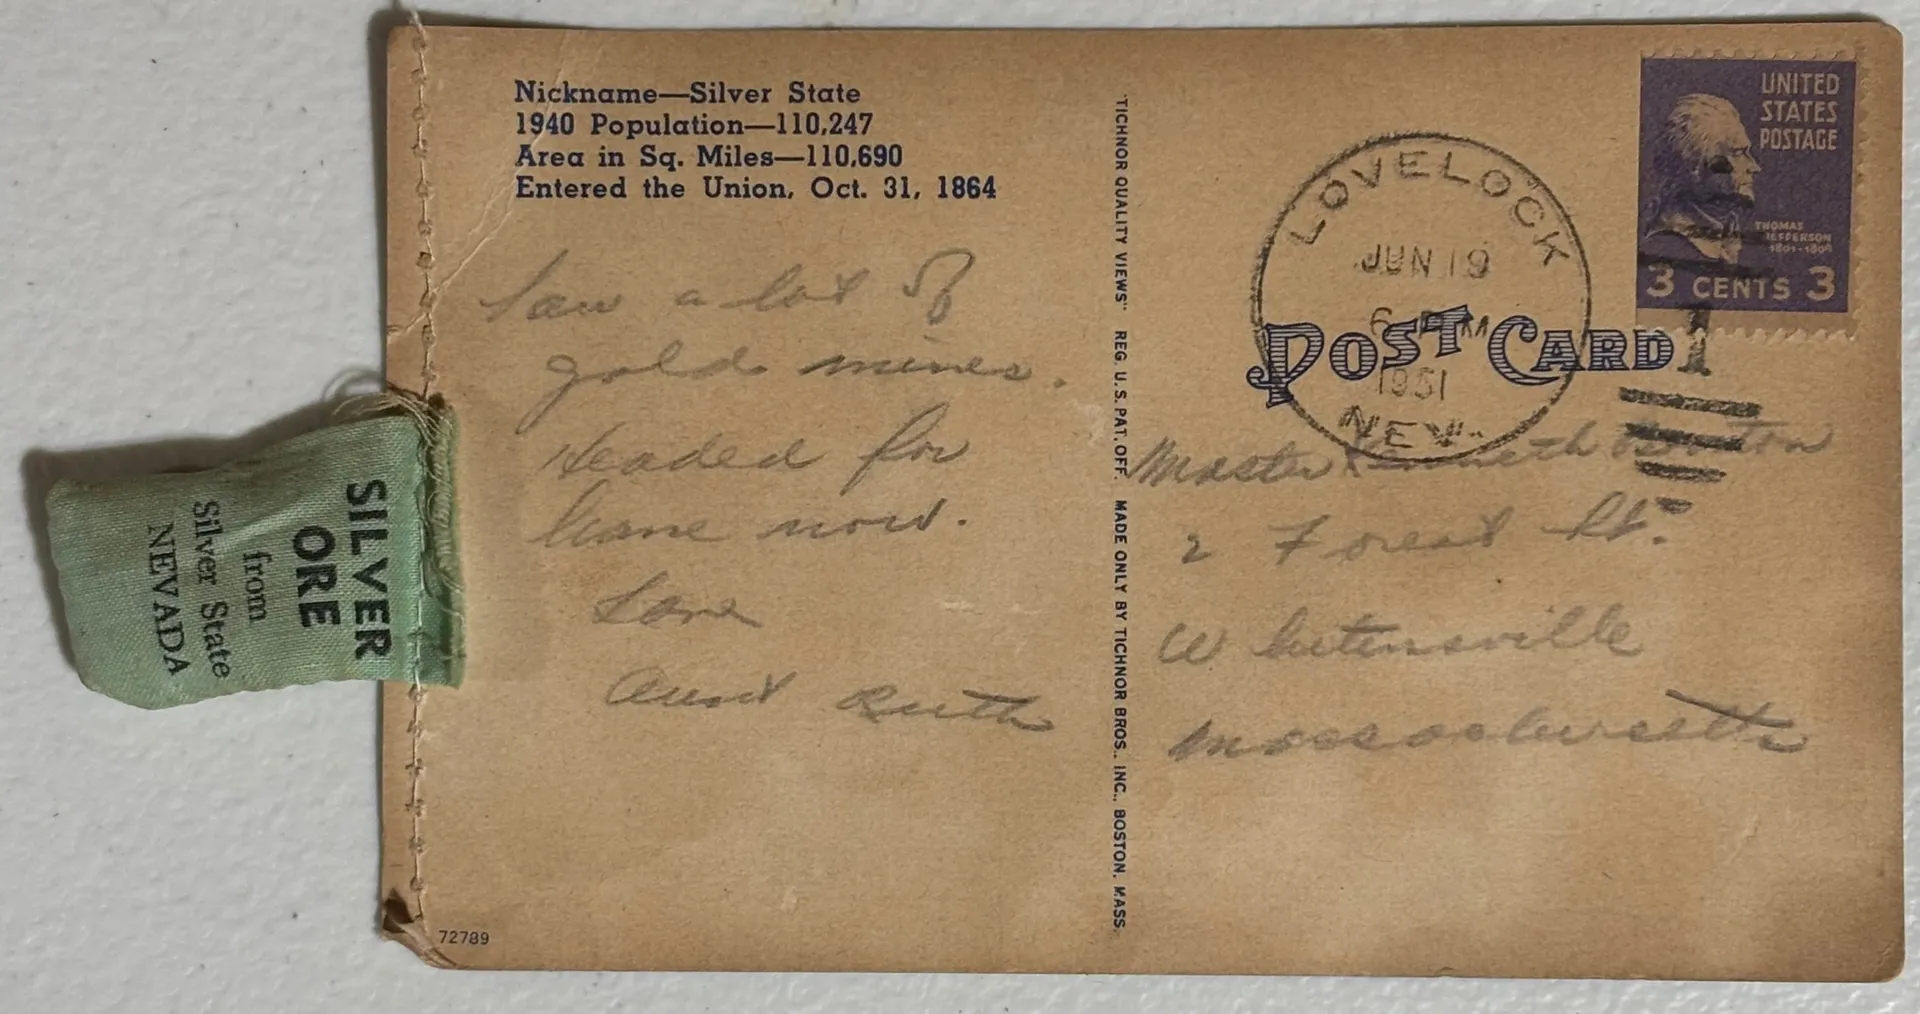 Nickname—Silver State
1940 Population—110,247
Area in Sq. Miles—110,690
Entered the Union, Oct. 31, 1864
Saw a lot of
gold mines.
Headed for
home now.
Love
Aunt Ruth
72789
SILVER
ORE
from
Silver State
NEVADA
"TICHNOR QUALITY VIEWS" REG. U.S. PAT. OFF. MADE ONLY BY TICHNOR BROS., INC., BOSTON, MASS.
UNITED
STATES
POSTAGE
THOMAS
JEFFERSON
1801-1809
3 CENTS 3
LOVELOCK
JUN 19
6 PM
1951
NEV.
POST CARD
Master Kenneth
2 Forest St.
Whitensville
Massachusetts